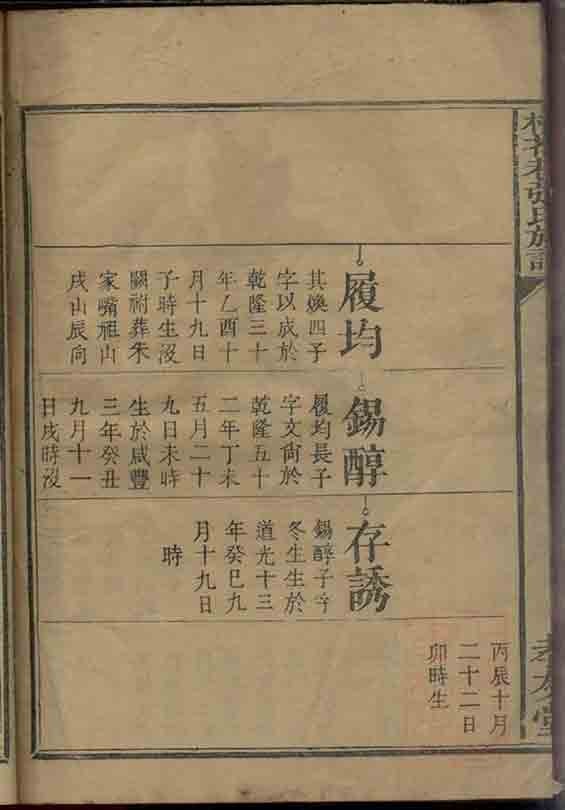 張氏族譜
丙辰十月
二十二日
卯時生
履均
其煥四子
字以成於
乾隆三十
年乙酉十
月十九日
子時生沒
闕祔葬朱
家嘴祖山
戌山辰向
錫醇
履均長子
字文尚於
乾隆五十
二年丁未
五月二十
九日未時
生於咸豐
三年癸丑
九月十一
日戌時沒
存誘
錫醇子字
冬生生於
道光十三
年癸巳九
月十九日
時
孝友堂